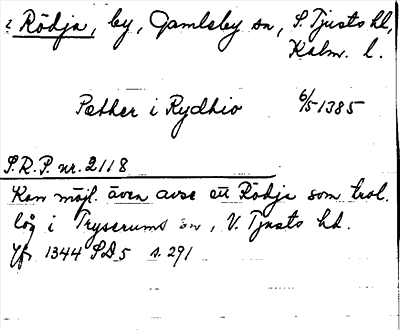 ? Rödja, by, Gamleby sn, S. Tjusts hd,
Kalm. l.
Pether i Rydhio 6/5 1385
S.R.P. nr. 2118
Kan möjl. även avse ett Rödja som trol.
låg i Tryserums sn, N. Tjusts hd.
Jfr 1344 SD 5 s. 291